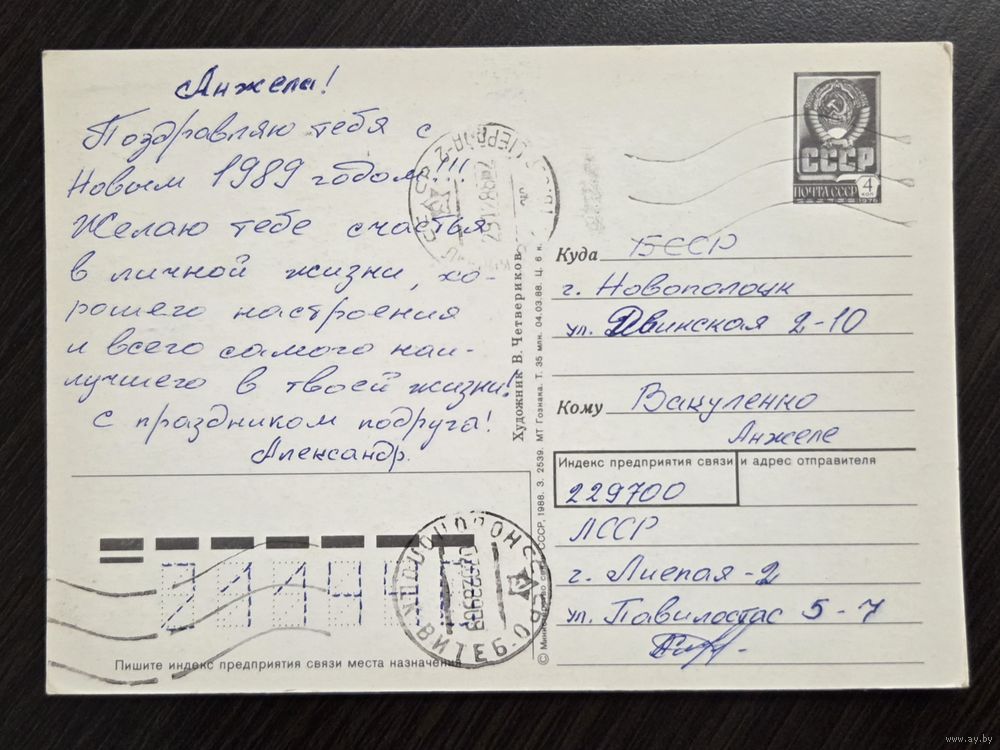 Анжела!
Поздравляю тебя с
Новым 1989 годом!!!
Желаю тебе счастья
в личной жизни, хо-
рошего настроения
и всего самого наи-
лучшего в твоей жизни!
с праздником подруга!
Александр.
Пишите индекс предприятия связи места назначения
ВИТЕБ.
Художник В. Четвериков
© Министерство связи СССР, 1988. З. 2539. МТ Гознака. Т. 35 млн. 04.03.88. Ц. 6 к.
СССР
ПОЧТА СССР
4
КОП
1976
Куда БССР
г. Новополоцк
ул. Двинская 2-10
Кому Вакуленко
Анжеле
Индекс предприятия связи и адрес отправителя
229700
ЛССР
г. Лиепая-2
ул. Павилостас 5-7
www.ay.by